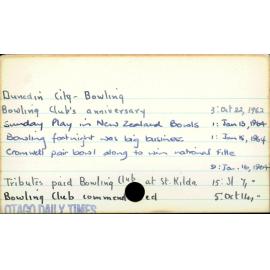 Dunedin City - Bowling
Bowling Club's anniversary 3: Oct 22, 1962
Sunday Play in New Zealand Bowls 1: Jan 13, 1964
Bowling fortnight was big business 1: Jan 15, 1964
Cromwell pair bowl along to win national title
9: Jan. 16, 1964
Tributes paid Bowling Club at St. Kilda 15: Jl 7,"
Bowling Club commended 5: Oct 14, "
OTAGO DAILY TIMES